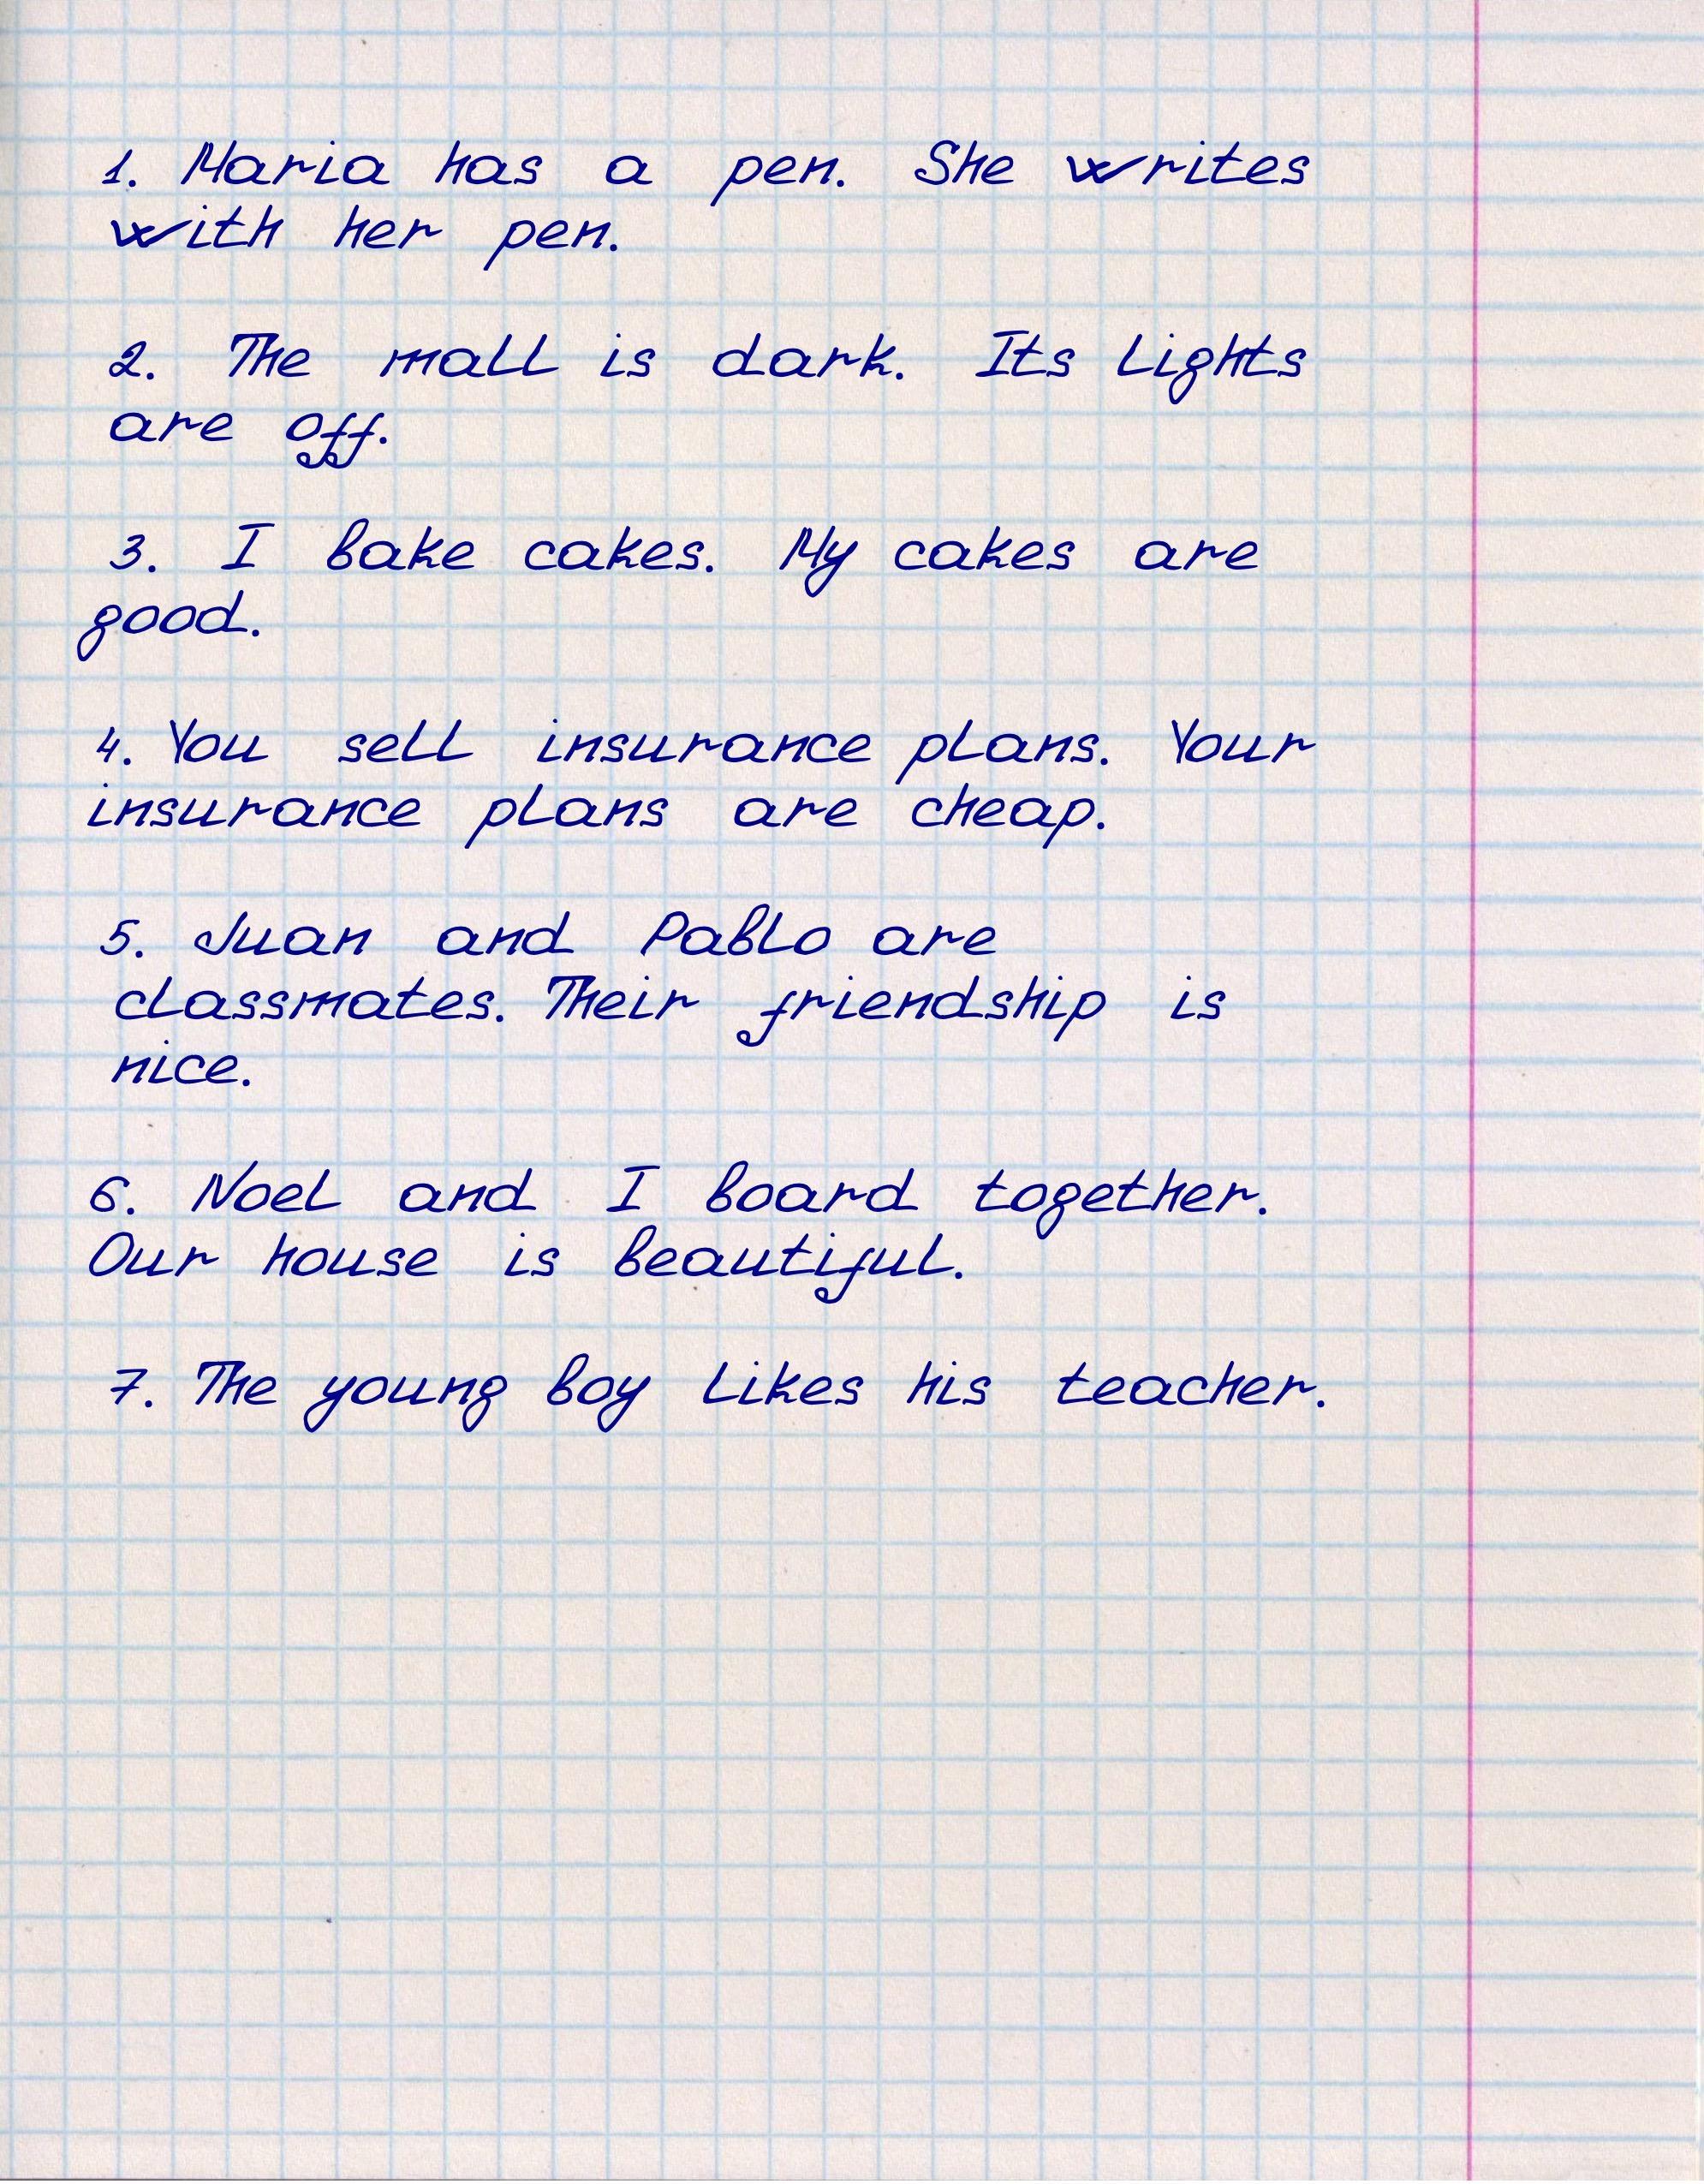 1. Maria has a pen. She writes
with her pen.
2. The mall is dark. Its lights
are off.
3. I bake cakes. My cakes are
good.
4. You sell insurance plans. Your
insurance plans are cheap.
5. Juan and Pablo are
classmates. Their friendship is
nice.
6. Noel and I board together.
Our house is beautiful.
7. The young boy likes his teacher.